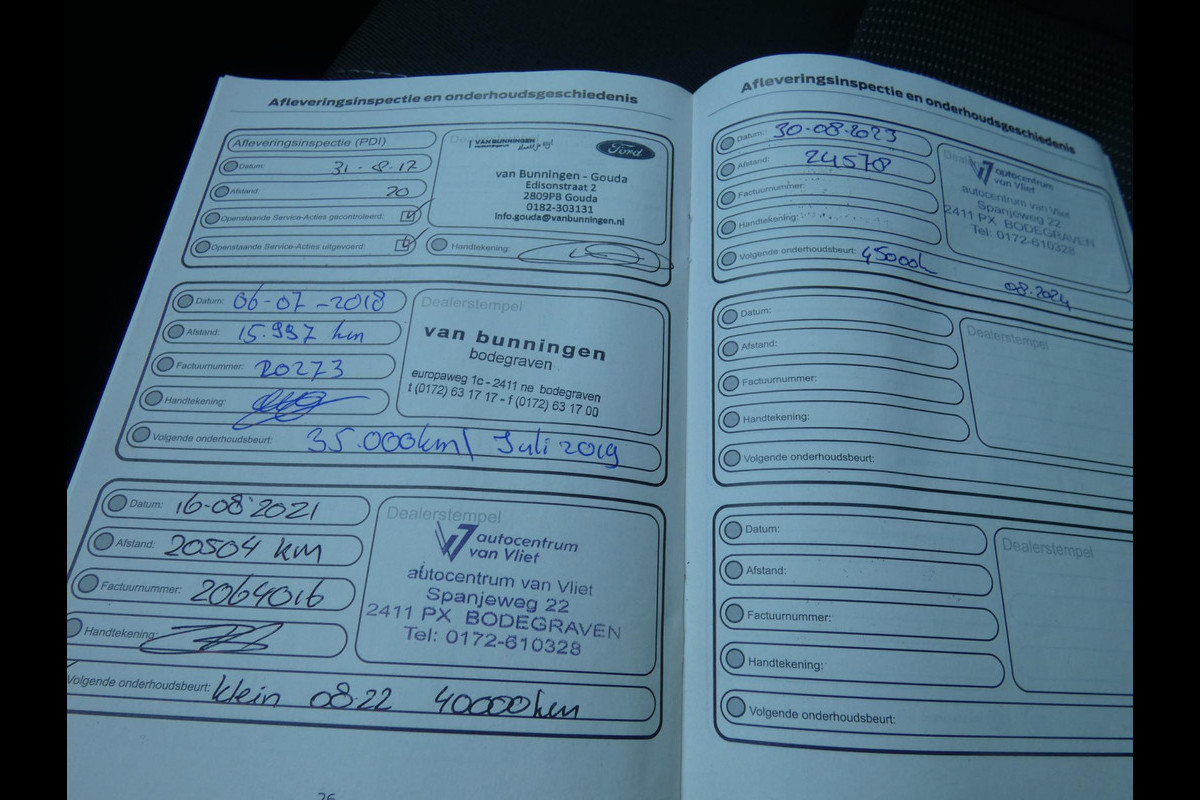 Afleveringsinspectie en onderhoudsgeschiedenis
Afleveringsinspectie (PDI)
Datum: 31-8-17
Afstand: 20
Openstaande Service-Acties gecontroleerd:
Openstaande Service-Acties uitgevoerd:
Handtekening:
VAN BUNNINGEN
Ford
van Bunningen - Gouda
Edisonstraat 2
2809PB Gouda
0182-303131
info.gouda@vanbunningen.nl
Datum: 06-07-2018
Afstand: 15.997 km
Factuurnummer: 20273
Handtekening:
Volgende onderhoudsbeurt: 35.000km/ Juli 2019
Dealerstempel
van bunningen
bodegraven
europaweg 1c - 2411 ne bodegraven
t (0172) 63 17 17 - f (0172) 63 17 00
Datum: 16-08-2021
Afstand: 20504 km
Factuurnummer: 2064016
Handtekening:
Volgende onderhoudsbeurt: klein 08-22 40000km
Dealerstempel
autocentrum
van Vliet
autocentrum van Vliet
Spanjeweg 22
2411 PX BODEGRAVEN
Tel: 0172-610328
26
Afleveringsinspectie en onderhoudsgeschiedenis
Datum: 30-08-2023
Afstand: 24578
Factuurnummer:
Handtekening:
Volgende onderhoudsbeurt: 45000k 08-2024
autocentrum
van Vliet
autocentrum van Vliet
Spanjeweg 22
2411 PX BODEGRAVEN
Tel: 0172-610328
Datum:
Afstand:
Factuurnummer:
Handtekening:
Volgende onderhoudsbeurt:
Dealerstempel
Datum:
Afstand:
Factuurnummer:
Handtekening:
Volgende onderhoudsbeurt:
Dealerstempel